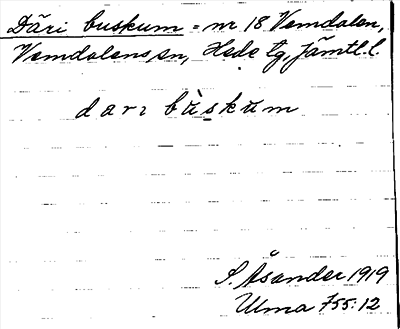 Däri buskum = nr 18 Vemdalen,
Vemdalens sn, Hede tg, Jämtl. l.
dari bùskum
S. Åsander 1919
Ulma 755:12